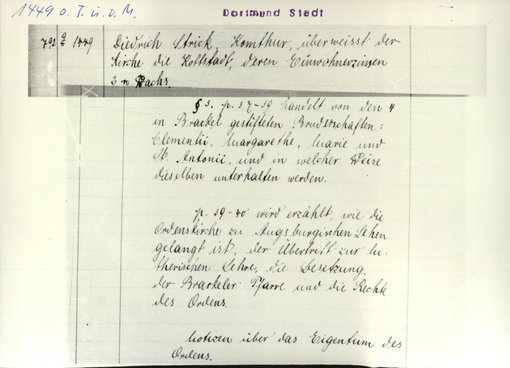 1449 o. T. u. o. M.
Dortmund Stadt
792 1449 Diedrich Strick, Komthur, überweisst der
Kirche die Hofstadt, deren Einwohner zinsen
2 n Wachs.
§ 3. p. 37-39 handelt von den 4
in Brackel gestifteten Bruderschaften:
Clementii, Margarethe, Marie und
St. Antonii, und in welcher Weise
dieselben unterhalten werden.
p. 39-40 wird erzählt, wie die
Ordenskirche zu Augsburgischen Lehen
gelangt ist, der Übertritt zur lu-
therischen Lehre, die Besetzung
der Brackeler Pfarre und die Rechte
des Ordens.
Notizen über das Eigentum des
Ordens.